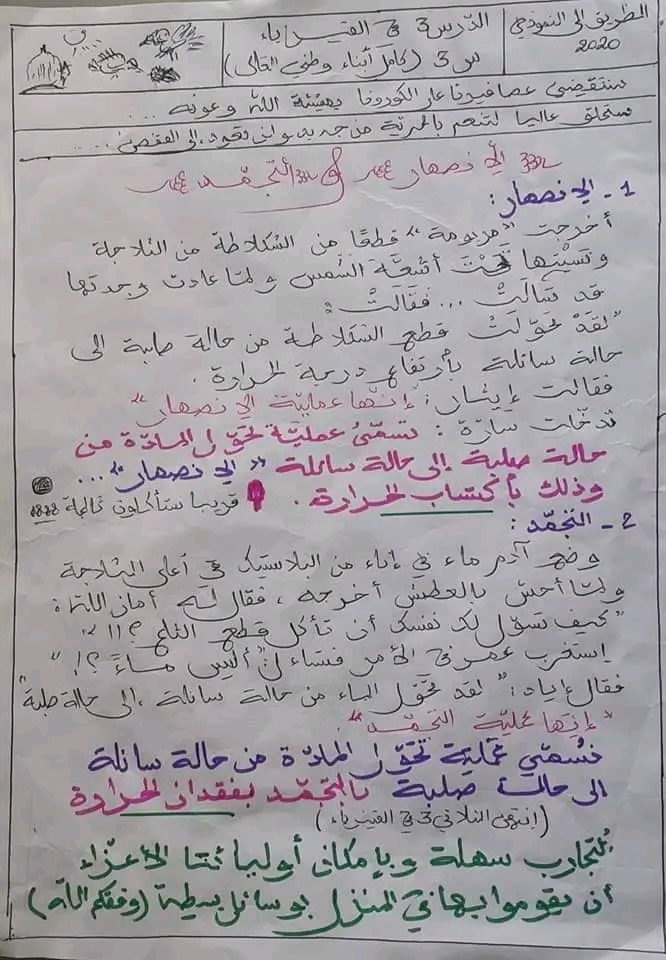 الطريق إلى النموذجي
2020
الدّرس 3 في الفيزياء
س 3 (كامل أبناء وطني الغالي)
ستنقضي عصافيرنا عام الكورونا بمشيئة الله وعونه ...
ستحلق عاليا لتنعم بالحرّية من جديد ولن تعود إلى القفص ...
الإنصهار والتجمّد
1 - الإنصهار :
أخرجت "مريومة" قطعًا من الشكلاطة من الثلاجة
ونسيتها تحت أشعّة الشّمس ولمّا عادت وجدتها
قد سالت ... فقالت :
"لقد تحوّلت قطع الشكلاطة من حالة صلبة الى
حالة سائلة بارتفاع درجة الحرارة .
فقالت إيثار : "إنّها عمليّة الإنصهار"
تدخّلت سارّة : تسمّى عمليّة تحوّل المادّة من
حالة صلبة إلى حالة سائلة "الإنصهار" ...
وذلك بأكتساب الحرارة .
قريبا ستأكلون ثالجة
2 - التجمّد :
وضع آدم ماء في إناء من البلاستيك في أعلى الثلاجة
ولمّا أحسّ بالعطش أخرجه ، فقال له أمان الله :
"كيف تسوّل لك نفسك أن تأكل قطع الثلج ؟!!"
إستغرب عمر في الأمر فتساءل "أليس ماءً ؟!"
فقال إياد : "لقد تحوّل الماء من حالة سائلة إلى حالة صلبة"
"إنّها عمليّة التجمّد"
نسمّي عمليّة تحوّل المادّة من حالة سائلة
الى حالة صلبة بالتجمّد بفقدان الحرارة
(انتهى الثلاثي 3 في الفيزياء)
التجارب سهلة وبإمكان أوليائنا الأعزّاء
أن يقوموا بها في المنزل بوسائل بسيطة (وفقكم الله)